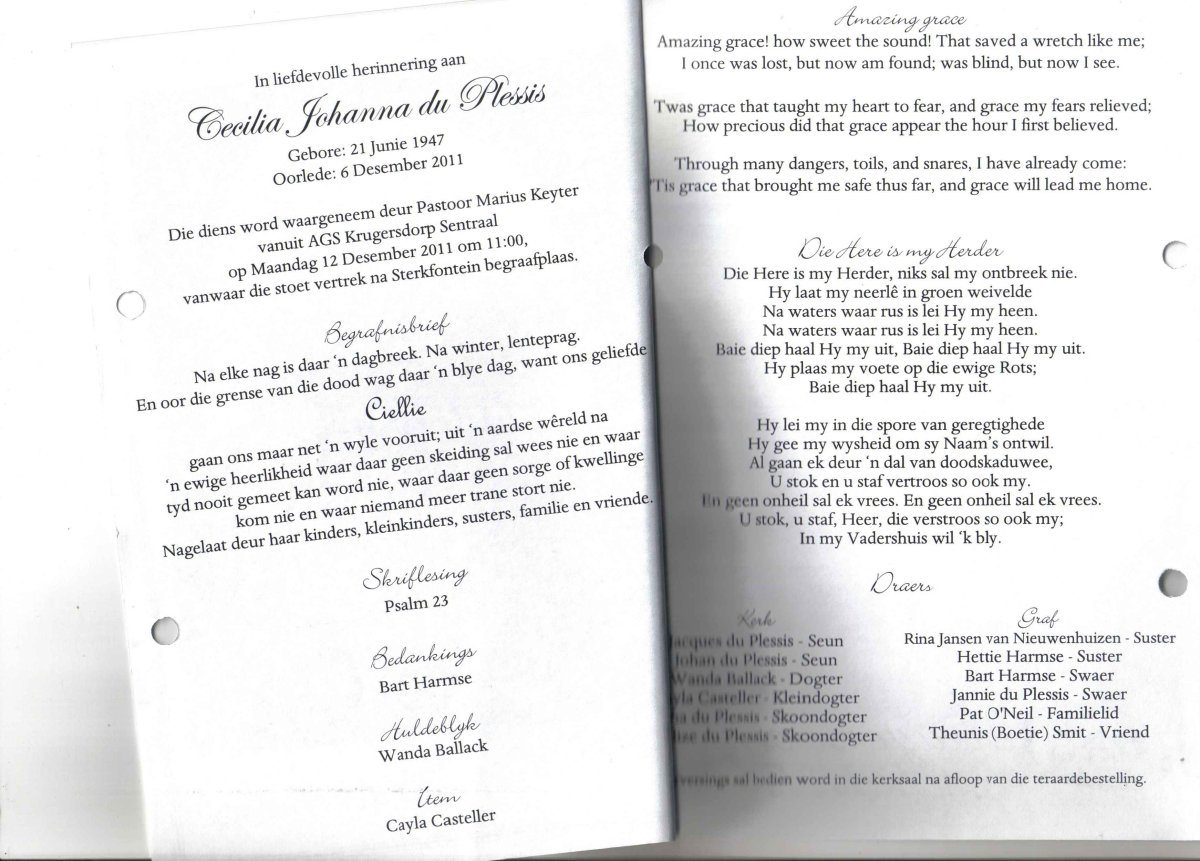 In liefdevolle herinnering aan
Cecilia Johanna du Plessis
Gebore: 21 Junie 1947
Oorlede: 6 Desember 2011
Die diens word waargeneem deur Pastoor Marius Keyter
vanuit AGS Krugersdorp Sentraal
op Maandag 12 Desember 2011 om 11:00,
vanwaar die stoet vertrek na Sterkfontein begraafplaas.
Begrafnisbrief
Na elke nag is daar ‘n dagbreek. Na winter, lenteprag.
En oor die grense van die dood wag daar ‘n blye dag, want ons geliefde
Ciellie
gaan ons maar net ‘n wyle vooruit; uit ‘n aardse wêreld na
‘n ewige heerlikheid waar daar geen skeiding sal wees nie en waar
tyd nooit gemeet kan word nie, waar daar geen sorge of kwellinge
kom nie en waar niemand meer trane stort nie.
Nagelaat deur haar kinders, kleinkinders, susters, familie en vriende.
Skriflesing
Psalm 23
Bedankings
Bart Harmse
Huldeblyk
Wanda Ballack
Item
Cayla Casteller
Amazing grace
Amazing grace! how sweet the sound! That saved a wretch like me;
I once was lost, but now am found; was blind, but now I see.
'Twas grace that taught my heart to fear, and grace my fears relieved;
How precious did that grace appear the hour I first believed.
Through many dangers, toils, and snares, I have already come:
'Tis grace that brought me safe thus far, and grace will lead me home.
Die Here is my Herder
Die Here is my Herder, niks sal my ontbreek nie.
Hy laat my neerlê in groen weivelde
Na waters waar rus is lei Hy my heen.
Na waters waar rus is lei Hy my heen.
Baie diep haal Hy my uit, Baie diep haal Hy my uit.
Hy plaas my voete op die ewige Rots;
Baie diep haal Hy my uit.
Hy lei my in die spore van geregtighede
Hy gee my wysheid om sy Naam’s ontwil.
Al gaan ek deur ‘n dal van doodskaduwee,
U stok en u staf vertroos so ook my.
En geen onheil sal ek vrees. En geen onheil sal ek vrees.
U stok, u staf, Heer, die verstroos so ook my;
In my Vadershuis wil ‘k bly.
Draers
Kerk
du Plessis - Seun
Johan du Plessis - Seun
Wanda Ballack - Dogter
Casteller - Kleindogter
du Plessis - Skoondogter
du Plessis - Skoondogter
Graf
Rina Jansen van Nieuwenhuizen - Suster
Hettie Harmse - Suster
Bart Harmse - Swaer
Jannie du Plessis - Swaer
Pat O'Neil - Familielid
Theunis (Boetie) Smit - Vriend
sal bedien word in die kerksaal na afloop van die teraardebestelling.